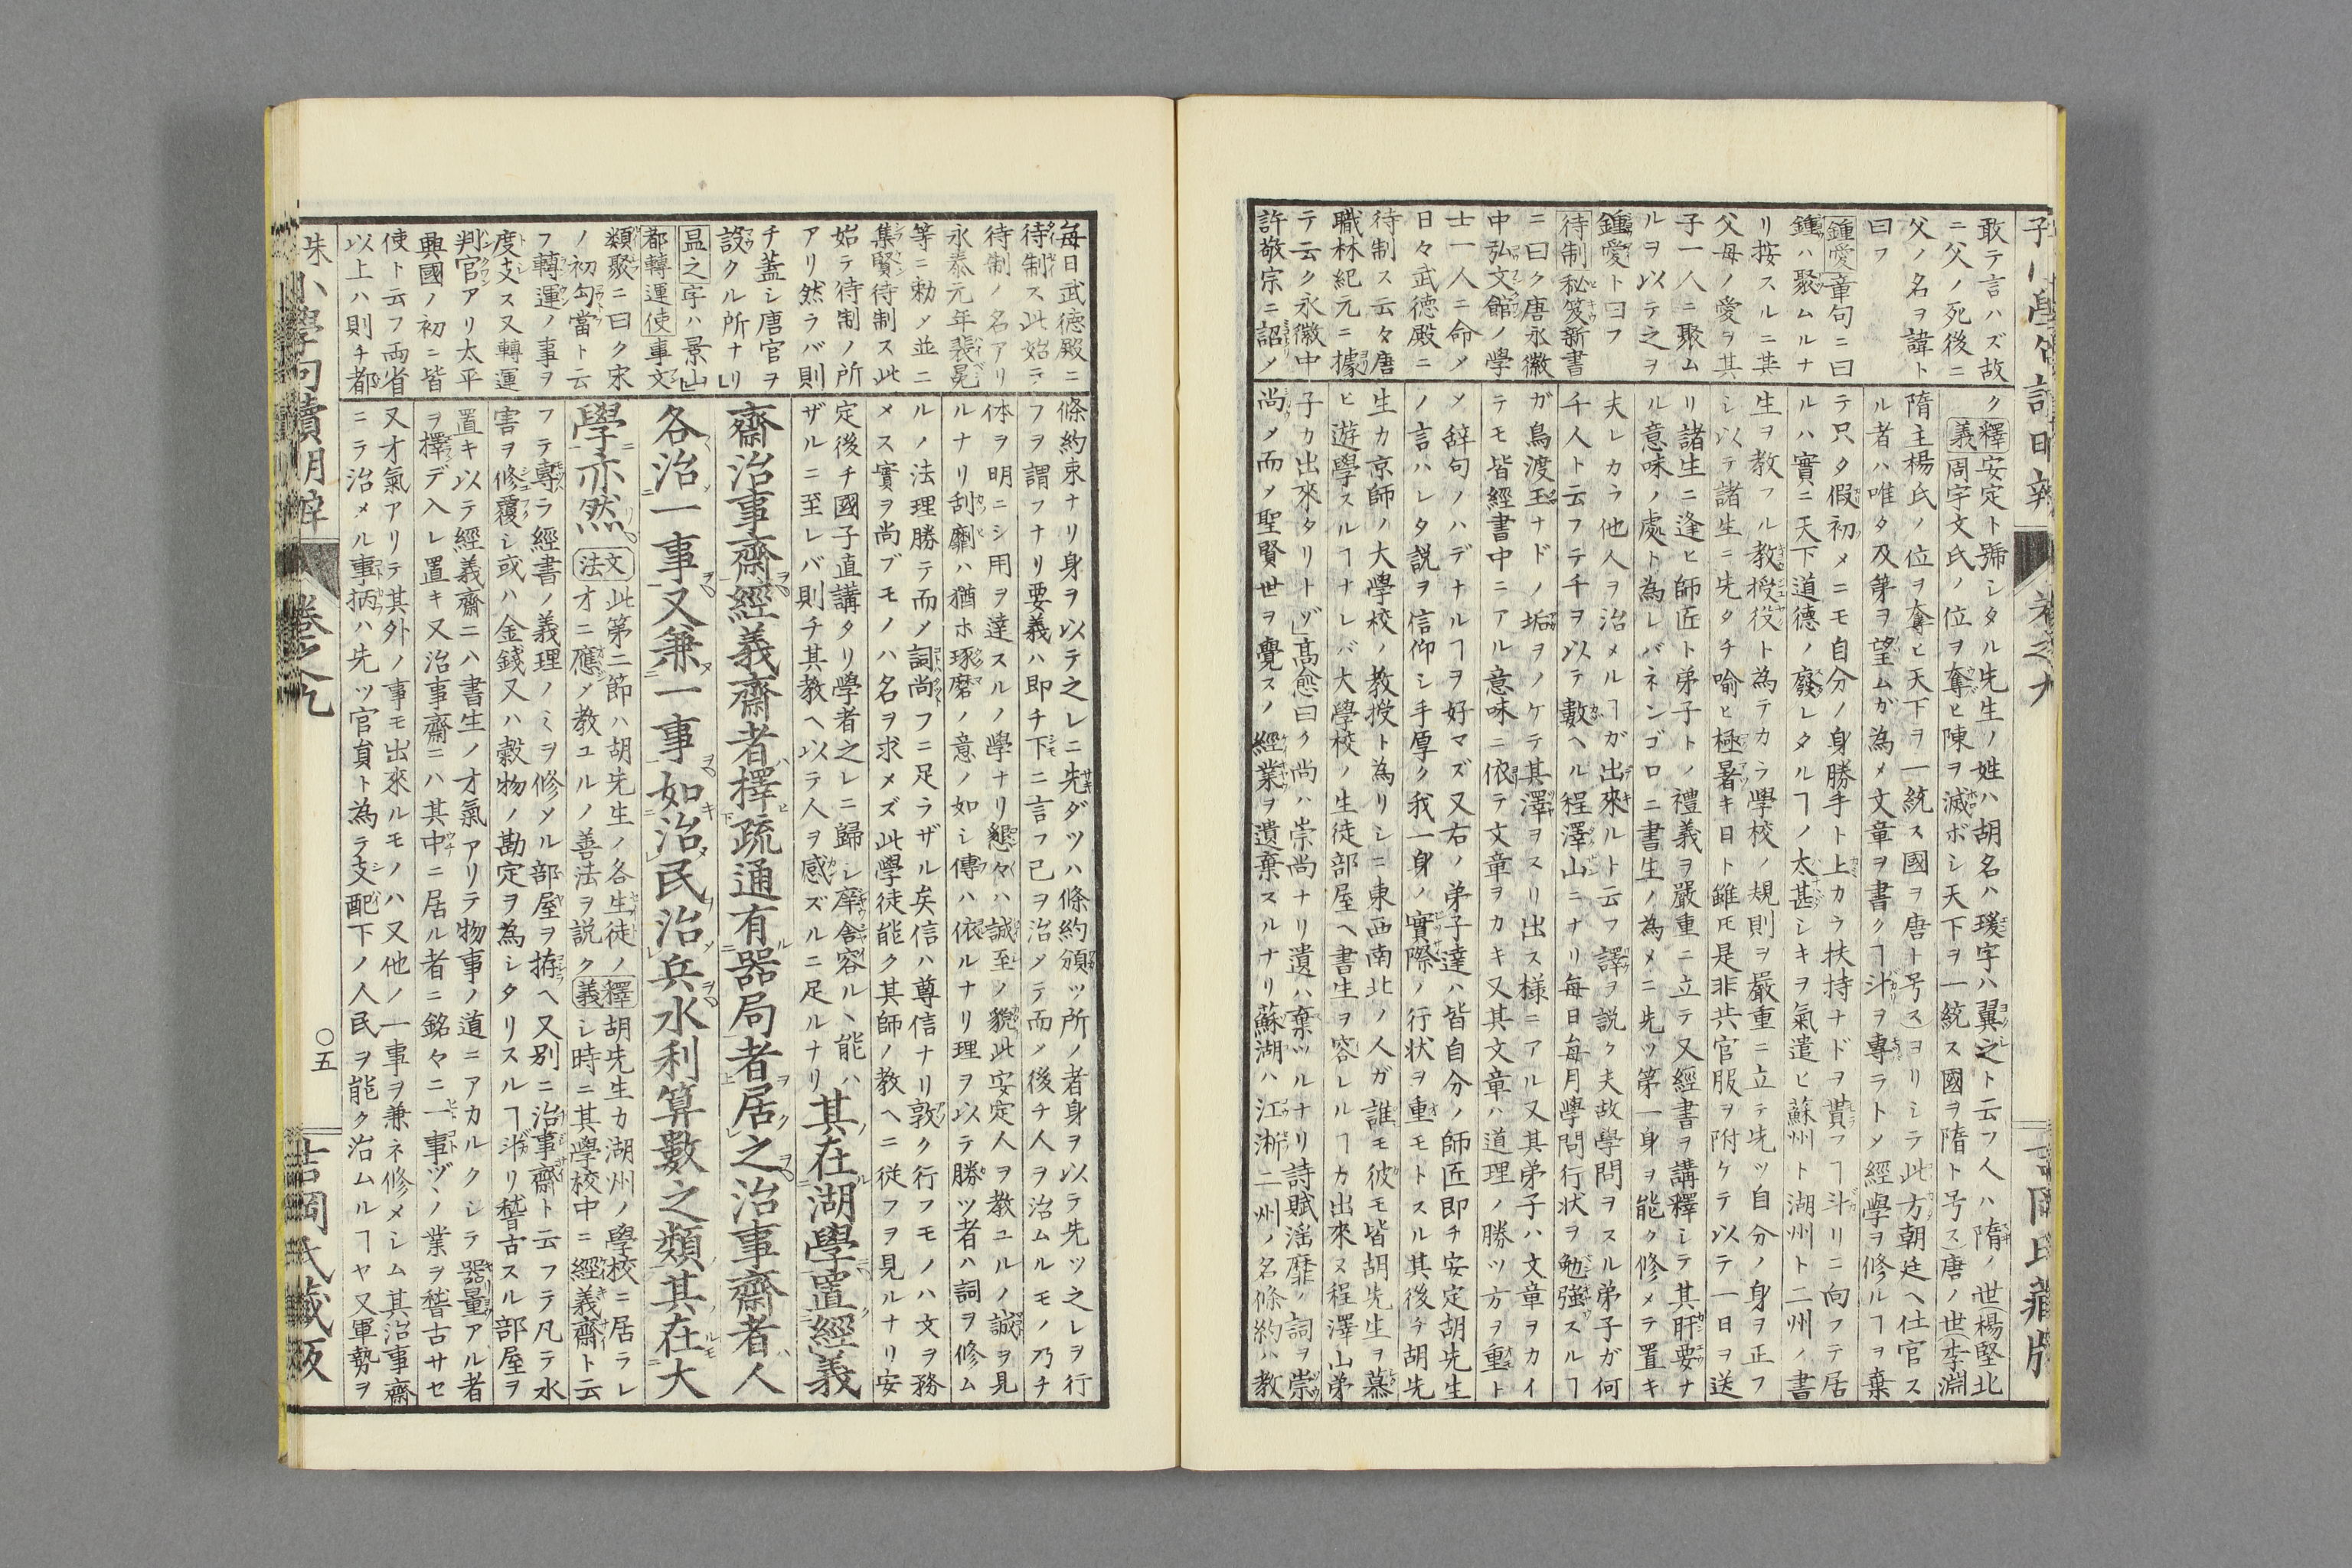 敢テ言ハズ故
ニ父ノ死後ニ
父ノ名ヲ諱ト
曰フ
鍾愛章句ニ曰
鍾ハ聚ムルナ
リ按スルニ其
父母ノ愛ヲ其
子一人ニ聚ム
ルヲ以テ之ヲ
鍾愛ト曰フ
待制秘笈新書
ニ曰ク唐永徽
中弘文館ノ學
士一人ニ命メ
日々武徳殿ニ
待制ス云々唐
職林紀元ニ據
テ云ク永徽中
許敬宗ニ詔メ
ク釋義安定ト號シタル先生ノ姓ハ胡名ハ瑗字ハ翼之ト云フ人ハ隋ノ世(楊堅北
周宇文氏ノ位ヲ奪ヒ陳ヲ滅ボシ天下ヲ一統ス國ヲ隋ト号ス)唐ノ世(李淵
隋主楊氏ノ位ヲ奪ヒ天下ヲ一統ス國ヲ唐ト号ス)ヨリシテ此方朝廷ヘ仕官ス
ル者ハ唯タ及第ヲ望ムガ為メ文章ヲ書クヿ斗ヲ專ラトメ經學ヲ修ルヿヲ棄
テ只タ假初メニモ自分ノ身勝手ト上カラ扶持ナドヲ貰フヿ斗リニ向フテ居
ルハ實ニ天下道徳ノ廢レタルヿノ太甚シキヲ氣遣ヒ蘇州ト湖州ト二州ノ書
生ヲ教フル教授役ト為テカラ學校ノ規則ヲ嚴重ニ立テ先ツ自分ノ身ヲ正フ
シ以テ諸生ニ先タチ喩ヒ極暑キ日ト雖𪜈是非共官服ヲ附ケテ以テ一日ヲ送
リ諸生ニ逢ヒ師匠ト弟子トノ禮義ヲ嚴重ニ立テ又經書ヲ講釋シテ其肝要ナ
ル意味ノ處ト為レバネンゴロニ書生ノ為メニ先ツ第一身ヲ能ク修メテ置キ
夫レカラ他人ヲ治メルヿガ出來ルト云フ譯ヲ説ク夫故學問ヲスル弟子ガ何
千人ト云フテ千ヲ以テ數ヘル程澤山ニナリ毎日毎月學問行状ヲ勉強スルヿ
ガ鳥渡玉ナドノ垢ヲノケテ其澤ヲスリ出ス様ニアル又其弟子ハ文章ヲカイ
テモ皆經書中ニアル意味ニ依テ文章ヲカキ又其文章ハ道理ノ勝ツ方ヲ重ト
メ辭句ノハデナルヿヲ好マズ又右ノ弟子達ハ皆自分ノ師匠即チ安定胡先生
ノ言ハレタ説ヲ信仰シ手厚ク我一身ノ實際ノ行状ヲ重モトスル其後チ胡先
生カ京師ノ大學校ノ教授ト為リシニ東西南北ノ人ガ誰モ彼モ皆胡先生ヲ慕
ヒ遊學スルヿナレバ大學校ノ生徒部屋ヘ書生ヲ容レルヿカ出來ヌ程澤山弟
子カ出來タリトヅ」高愈曰ク尚ハ崇尚ナリ遺ハ棄ツルナリ詩賦淫靡ノ詞ヲ崇
尚メ而メ聖賢世ヲ覺スノ經業ヲ遺棄スルナリ蘇湖ハ江淅二州ノ名條約ハ教
毎日武徳殿ニ
待制ス此始テ
待制ノ名アリ
永泰元年裴冕
等ニ勅メ並ニ
集賢待制ス此
始テ待制ノ所
アリ然ラバ則
チ蓋シ唐官ヲ
設クル所ナリ」
昷之字ハ景山」
都轉運使事文
類聚ニ曰ク宋
ノ初勾當ト云
フ轉運ノ事ヲ
度支ス又轉運
判官アリ太平
興國ノ初ニ皆
使ト云フ両省
以上ハ則チ都
條約束ナリ身ヲ以テ之レニ先ダツハ條約頒ツ所ノ者身ヲ以テ先ツ之レヲ行
フヲ謂フナリ要義ハ即チ下ニ言フ己ヲ治メテ而メ後チ人ヲ治ムルモノ乃チ
体ヲ明ニシ用ヲ達スルノ學ナリ懇々ハ誠至ノ貌此安定人ヲ教ユルノ誠ヲ見
ルナリ刮劘ハ猶ホ琢磨ノ意ノ如シ傳ハ依ルナリ理ヲ以テ勝ツ者ハ詞ヲ修ム
ルノ法理勝テ而メ詞尚フニ足ラザル矣信ハ尊信ナリ敦ク行フモノハ文ヲ務
メス實ヲ尚ブモノハ名ヲ求メズ此學徒能ク其師ノ教ヘニ従フヲ見ルナリ安
定後チ國子直講タリ學者之レニ歸シ庠舎容ルヽ能ハ
ザルニ至レバ則チ其教ヘ以テ人ヲ感ズルニ足ルナリ
其在湖學置經義
齋治事齋經義齋者擇疏通有器局者居之治事齋者人
各治一事又兼一事如治民治兵水利算數之類其在大
學亦然
文法此第二節ハ胡先生ノ各生徒ノ
才ニ應メ教ユルノ善法ヲ説ク
釋義胡先生カ湖州ノ學校ニ居ラレ
シ時ニ其學校中ニ經義齋ト云
フテ專ラ經書ノ義理ノミヲ修メル部屋ヲ拵ヘ又別ニ治事齋ト云フテ凡テ水
害ヲ修覆シ或ハ金錢又ハ穀物ノ勘定ヲ為シタリスルヿ斗リ稽古スル部屋ヲ
置キ以テ經義齋ニハ書生ノ才氣アリテ物事ノ道ニアカルクシテ器量アル者
ヲ擇デ入レ置キ又治事齋ニハ其中ニ居ル者ニ銘々ニ一事ヅヽノ業ヲ稽古サセ
又才氣アリテ其外ノ事モ出來ルモノハ又他ノ一事ヲ兼ネ修メシム其治事齋
ニテ治メル事柄ハ先ツ官員ト為テ支配下ノ人民ヲ能ク治ムルヿヤ又軍勢ヲ
小學句讀明辨
卷之九
○五
吉岡氏藏版